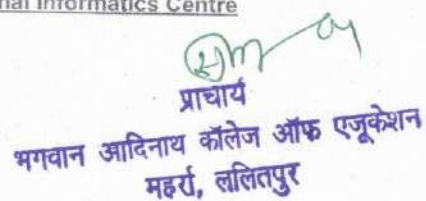 Informatics Centre
प्राचार्य
भगवान आदिनाथ कॉलेज ऑफ एजूकेशन
महर्रा, ललितपुर